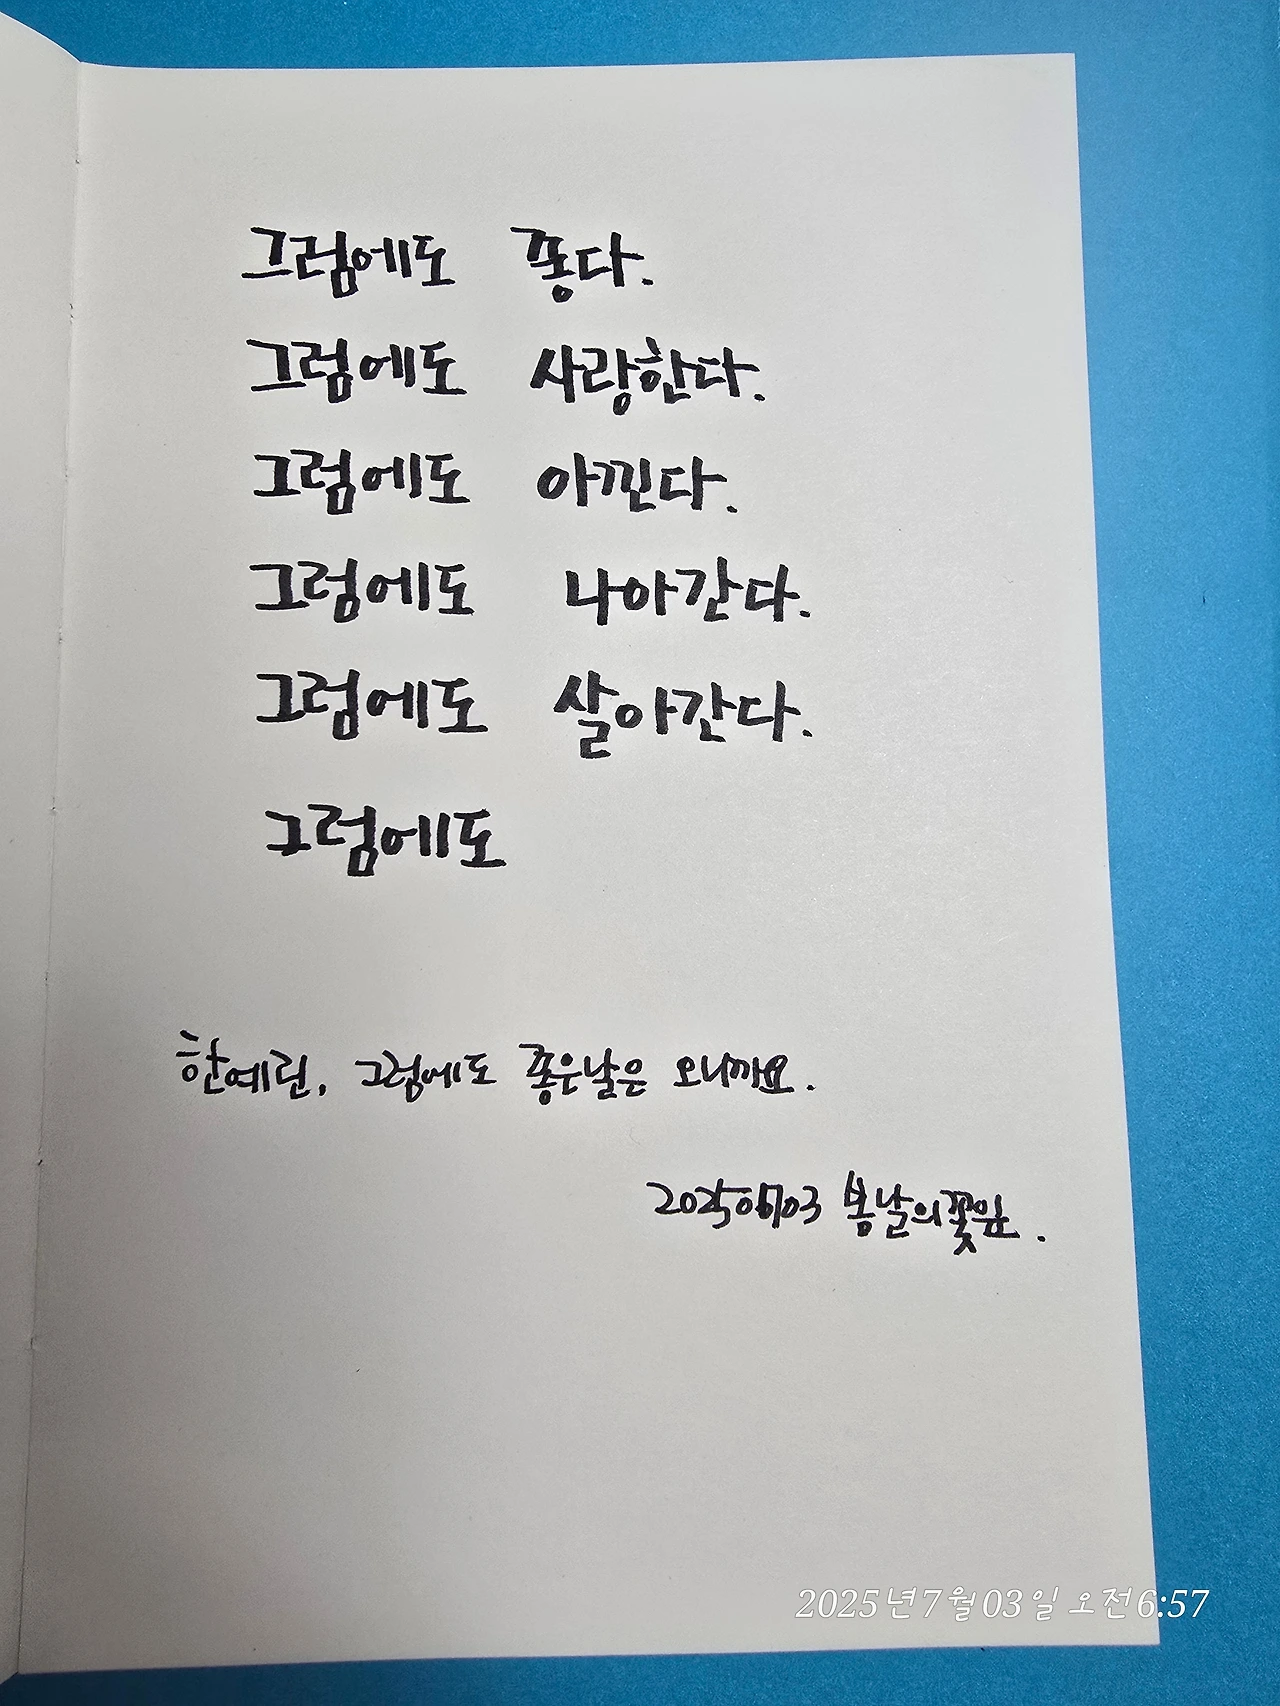 그럼에도 좋다.
그럼에도 사랑한다.
그럼에도 아낀다.
그럼에도 나아간다.
그럼에도 살아간다.
그럼에도
한예린, 그럼에도 좋은날은 오니까요.
20250703 봄날의꽃잎.
2025년7월03일 오전6:57